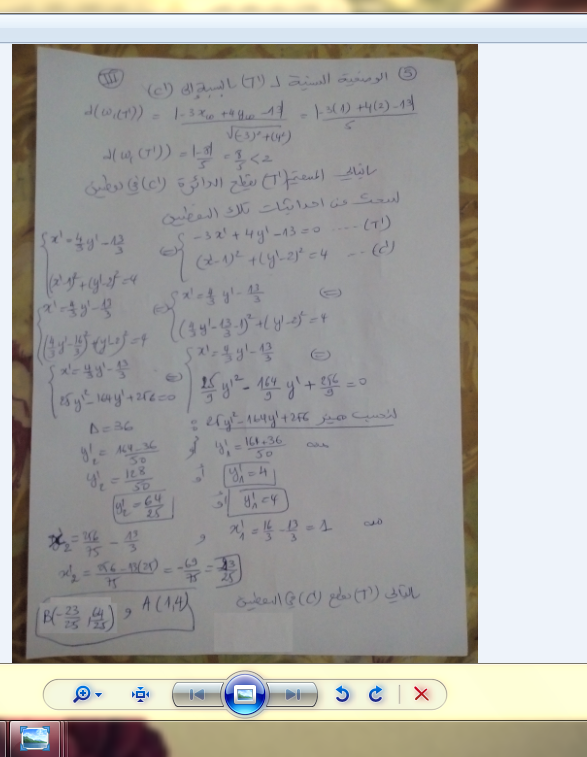 III
⑤ الوضعية النسبية لـ (T') بالنسبة إلى (C')
d(ω,(T')) = |-3xω + 4yω - 13| / √(-3)²+(4²) = |-3(1) + 4(2) - 13| / 5
d(ω,(T')) = |-8|/5 = 8/5 < 2
بالتالي المستقيم (T') يقطع الدائرة (C') في نقطتين
لنبحث عن احداثيات تلك النقطتين
{ -3x' + 4y' - 13 = 0 ---- (T')
(x'-1)² + (y'-2)² = 4 -- (C')
⇔ { x' = 4/3 y' - 13/3
(x'-1)² + (y'-2)² = 4
⇔ { x' = 4/3 y' - 13/3
(4/3 y' - 13/3 - 1)² + (y'-2)² = 4
⇔ { x' = 4/3 y' - 13/3
(4/3 y' - 16/3)² + (y'-2)² = 4
⇔ { x' = 4/3 y' - 13/3
25/9 y'² - 164/9 y' + 256/9 = 0
⇔ { x' = 4/3 y' - 13/3
25y'² - 164y' + 256 = 0
لنحسب مميز 25y'² - 164y' + 256 :
Δ = 36
منه y'₁ = 164+36 / 50 و y'₂ = 164-36 / 50
y'₁ = 4 أو y'₂ = 128/50
y'₁ = 4 أو y'₂ = 64/25
منه x'₁ = 16/3 - 13/3 = 1 , x'₂ = 256/75 - 13/3
x'₂ = 256-13(25) / 75 = -69/75 = -23/25
بالتالي (T') يقطع (C') في النقطتين
A(1,4) و B(-23/25, 64/25)